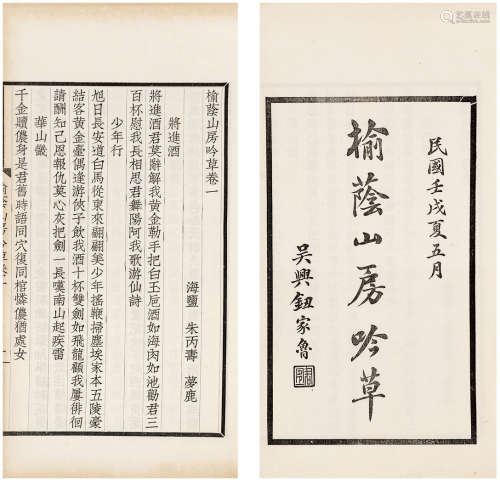 民國壬戌夏五月
榆蔭山房吟草
吳興鈕家魯
榆蔭山房吟草卷一
海鹽 朱丙壽 夢鹿
將進酒
將進酒君莫辭解我黃金勒手把白玉巵酒如海肉如池勸君三
百杯慰我長相思君舞陽阿我歌游仙詩
少年行
旭日長安道白馬從東來翩翩美少年搖鞭掃塵埃家本五陵豪
結客黃金臺偶逢游俠子飲我酒十杯雙劍如飛龍顧我屢徘徊
請酬知己恩報仇莫心灰把劍一長嘆南山起疾雷
華山畿
千金贖儂身是君舊時語同穴復同棺憐儂猶處女